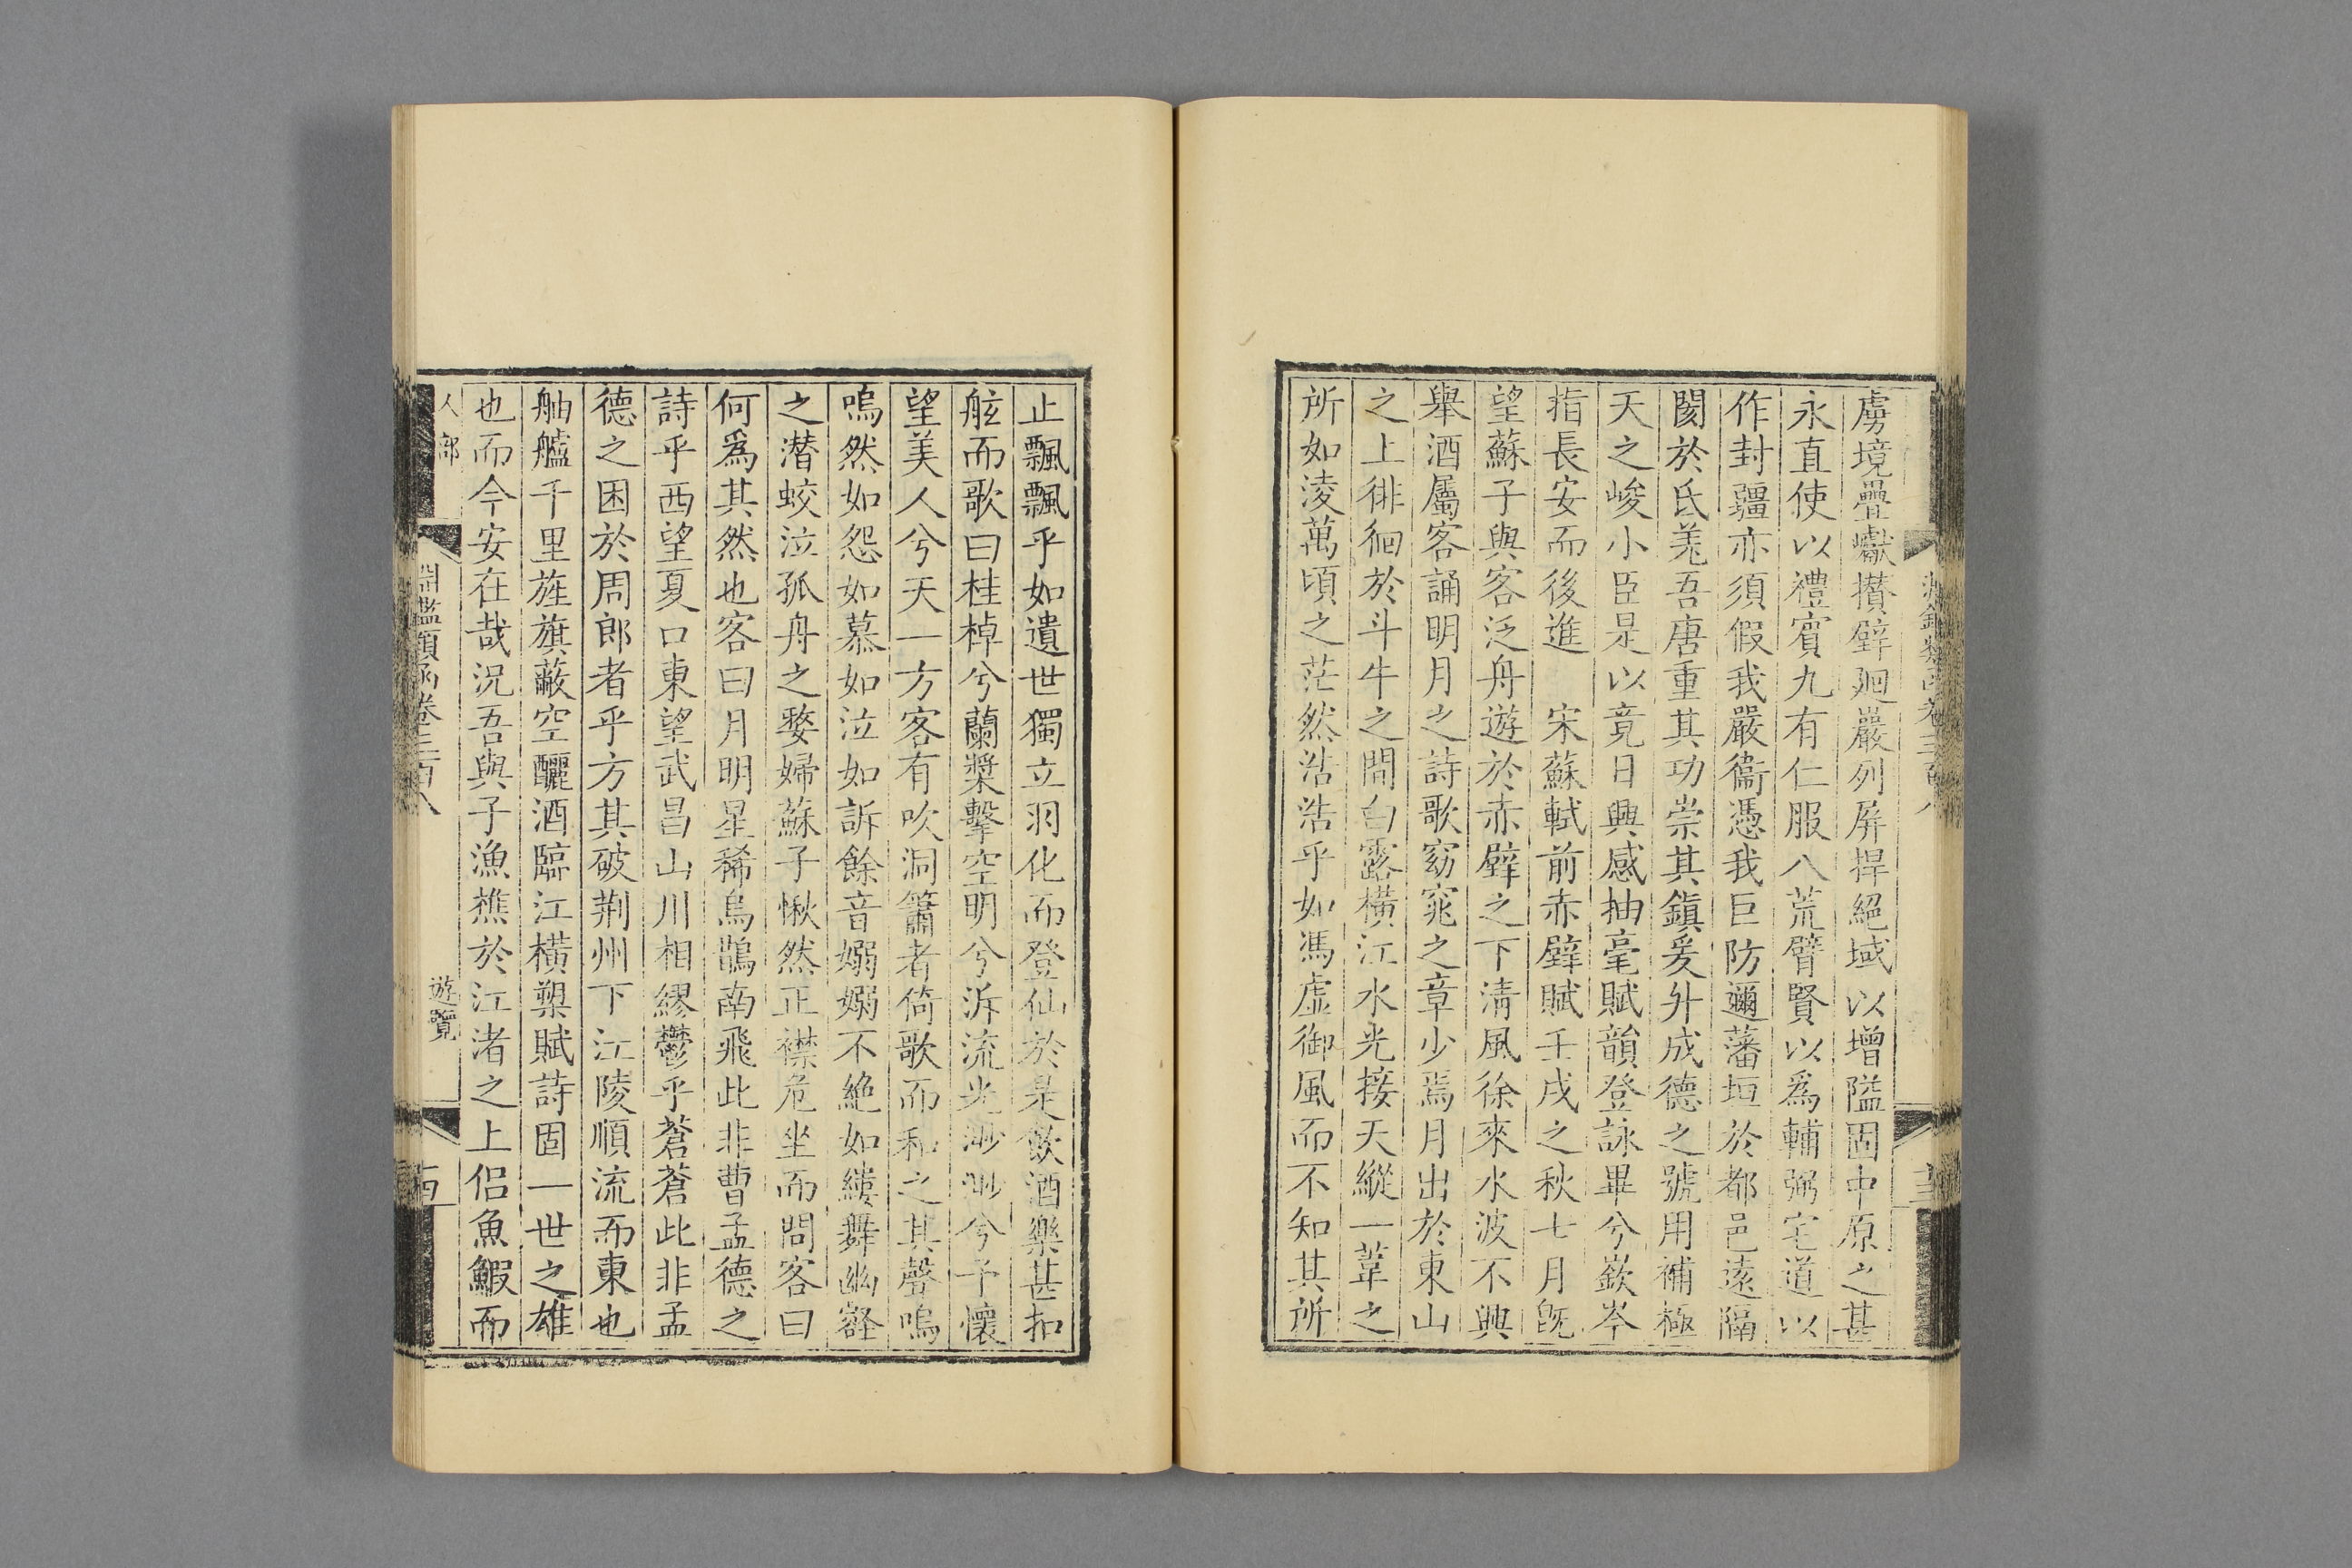 虜境疊巘攢壁廻巖列屏捍絕域以增隘固中原之甚
永直使以禮賓九有仁服八荒臂賢以爲輔弼宅道以
作封疆亦須假我嚴衞憑我巨防邇藩垣於都邑遠隔
閡於氐羌吾唐重其功崇其鎭爰升成德之號用補極
天之峻小臣是以竟日興感抽毫賦韻登詠畢兮嶔岑
指長安而後進　宋蘇軾前赤壁賦壬戌之秋七月旣
望蘇子與客泛舟遊於赤壁之下淸風徐來水波不興
舉酒屬客誦明月之詩歌窈窕之章少焉月出於東山
之上徘徊於斗牛之間白露橫江水光接天縱一葦之
所如淩萬頃之茫然浩浩乎如馮虛御風而不知其所
止飄飄乎如遺世獨立羽化而登仙於是飮酒樂甚扣
舷而歌曰桂棹兮蘭槳擊空明兮泝流光渺渺兮予懷
望美人兮天一方客有吹洞簫者倚歌而和之其聲嗚
嗚然如怨如慕如泣如訴餘音嫋嫋不絶如縷舞幽壑
之潜蛟泣孤舟之嫠婦蘇子愀然正襟危坐而問客曰
何爲其然也客曰月明星稀烏鵲南飛此非曹孟德之
詩乎西望夏口東望武昌山川相繆鬱乎蒼蒼此非孟
德之困於周郎者乎方其破荆州下江陵順流而東也
舳艫千里旌旗蔽空釃酒臨江橫槊賦詩固一世之雄
也而今安在哉況吾與子漁樵於江渚之上侣魚鰕而
人部
淵鑑類函卷三百八
遊覽